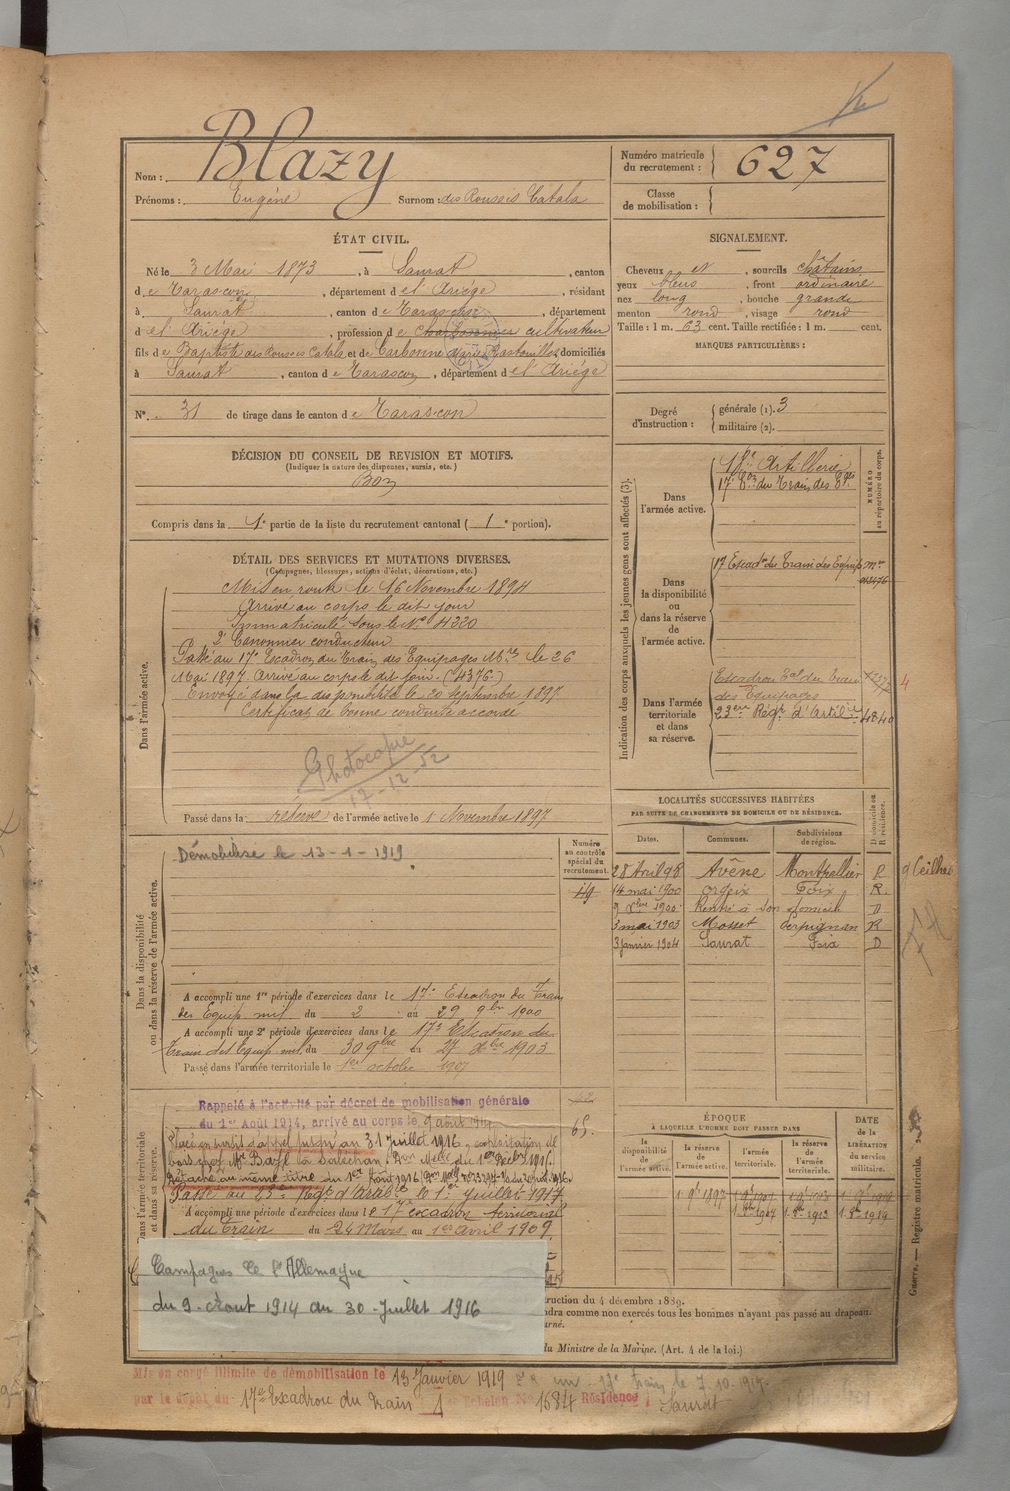 Nom : Blazy
Prénoms : Eugène Surnom : des Rousses Catala
Numéro matricule du recrutement : 627
Classe de mobilisation :
ÉTAT CIVIL.
Né le 3 Mai 1873, à Saurat, canton
de Tarascon, département de l'Ariége, résidant
à Saurat, canton de Tarascon, département
de l'Ariége, profession de cultivateur
fils de Baptiste des Rousses Catala et de Carbonne Marie Rastouille, domiciliés
à Saurat, canton de Tarascon, département de l'Ariége
N° 31 de tirage dans le canton de Tarascon
SIGNALEMENT.
Cheveux et, sourcils châtains
yeux bleus, front ordinaire
nez long, bouche grande
menton rond, visage rond
Taille : 1 m. 63 cent. Taille rectifiée : 1 m. cent.
MARQUES PARTICULIÈRES :
Degré d'instruction : générale (1). 3
militaire (2).
DÉCISION DU CONSEIL DE REVISION ET MOTIFS.
(Indiquer la nature des dispenses, sursis, etc.)
Bon
Compris dans la 1e partie de la liste du recrutement cantonal (1e portion).
DÉTAIL DES SERVICES ET MUTATIONS DIVERSES.
(Campagnes, blessures, actions d'éclat, décorations, etc.)
Dans l'armée active.
Mis en route le 16 Novembre 1894
Arrivé au corps le dit jour
Immatriculé sous le N° 4320
2e Canonnier conducteur
Passé au 17e Escadron du Train des Equipages Mres le 26
Mai 1897. Arrivé au corps le dit jour. (4376)
Envoyé dans la disponibilité le 20 Septembre 1897
Certificat de bonne conduite accordé
Photocopie
17-12-52
Passé dans la réserve de l'armée active le 1 Novembre 1897
Indication des corps auxquels les jeunes gens sont affectés (3).
NUMÉRO au répertoire du corps.
Dans l'armée active.
18e Artillerie
17e Eon du Train des Eqes
Dans la disponibilité ou dans la réserve de l'armée active.
17 Escadn du Train des Equip
Dans l'armée territoriale et dans sa réserve.
Escadron Tal du train
des Equipages
23eme Régt d'Artilie 4840
LOCALITÉS SUCCESSIVES HABITÉES
PAR SUITE DE CHANGEMENTS DE DOMICILE OU DE RÉSIDENCE.
Dates. Communes. Subdivisions de région. Domicile ou Résidence.
28 Avril 98 Avène Montpellier R
14 mai 1900 Orgeix Foix R.
9 Xbre 1900 Rentré à son domicile D
3 mai 1903 Mosset Perpignan R
3 janvier 1904 Saurat Foix D
Dans la disponibilité ou dans la réserve de l'armée active.
Démobilisé le 13-1-1919
Numéro au contrôle spécial du recrutement.
A accompli une 1re période d'exercices dans le 17e Escadron du Train
des Equip mil du 2 au 29 9bre 1900
A accompli une 2e période d'exercices dans le 17e Escadron du
Train des Equip mil. du 30 9bre au 27 Xbre 1903
Passé dans l'armée territoriale le 1er octobre 1907
Dans l'armée territoriale et dans sa réserve.
Rappelé à l'activité par décret de mobilisation générale
du 1er Août 1914, arrivé au corps le 9 août 1914
65.
au 31 Juillet 1916, exploitation de
Détaché au même titre du 1er Août 1916
Passé au 23e Régt d'Artie le 1er Juillet 1917
A accompli une période d'exercices dans le 17 escadron territorial
du Train du 24 Mars au 1er avril 1909
ÉPOQUE À LAQUELLE L'HOMME DOIT PASSER DANS
la disponibilité de l'armée active. la réserve de l'armée active. l'armée territoriale. la réserve de l'armée territoriale.
DATE de la LIBÉRATION du service militaire.
Campagnes Ce l'Allemagne
du 9-Août 1914 au 30-Juillet 1916
struction du 4 décembre 1889.
ndra comme non exercés tous les hommes n'ayant pas passé au drapeau
urné.
du Ministre de la Marine. (Art. 4 de la loi.)
Guerre. — Registre matricule.
Mis en congé illimité de démobilisation le 13 Janvier 1919
par le dépôt du 17e Escadron du Train Echelon No 1684 Résidence Saurat